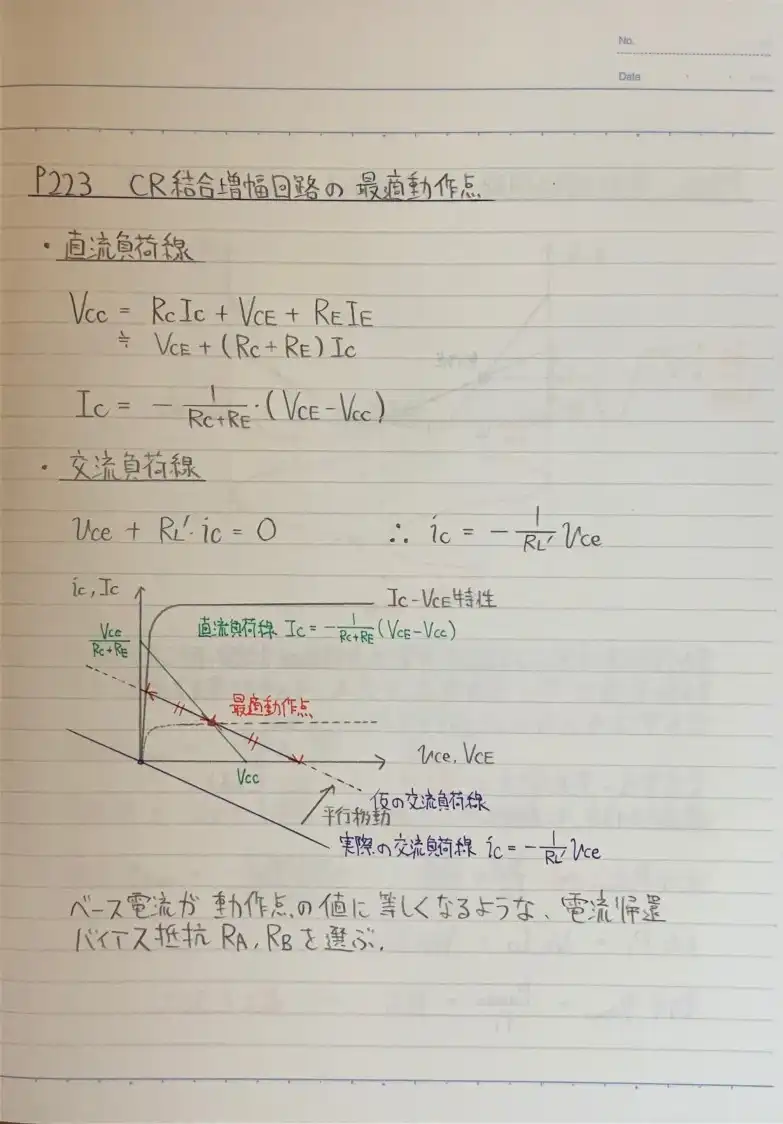 No.
Date
P223 CR結合増幅回路の最適動作点
・直流負荷線
Vcc = RcIc + VCE + REIE
≒ VCE + (Rc+RE) Ic
Ic = - 1/(Rc+RE) ・(VCE - Vcc)
・交流負荷線
vce + RL'・ic = 0 ∴ ic = - 1/RL' vce
ic, Ic
Ic-VCE特性
直流負荷線 Ic = - 1/(Rc+RE) (VCE-Vcc)
Vcc/(Rc+RE)
最適動作点
vce, VCE
Vcc
仮の交流負荷線
平行移動
実際の交流負荷線 ic = - 1/RL' vce
ベース電流が動作点の値に等しくなるような、電流帰還
バイアス抵抗 RA, RBを選ぶ.